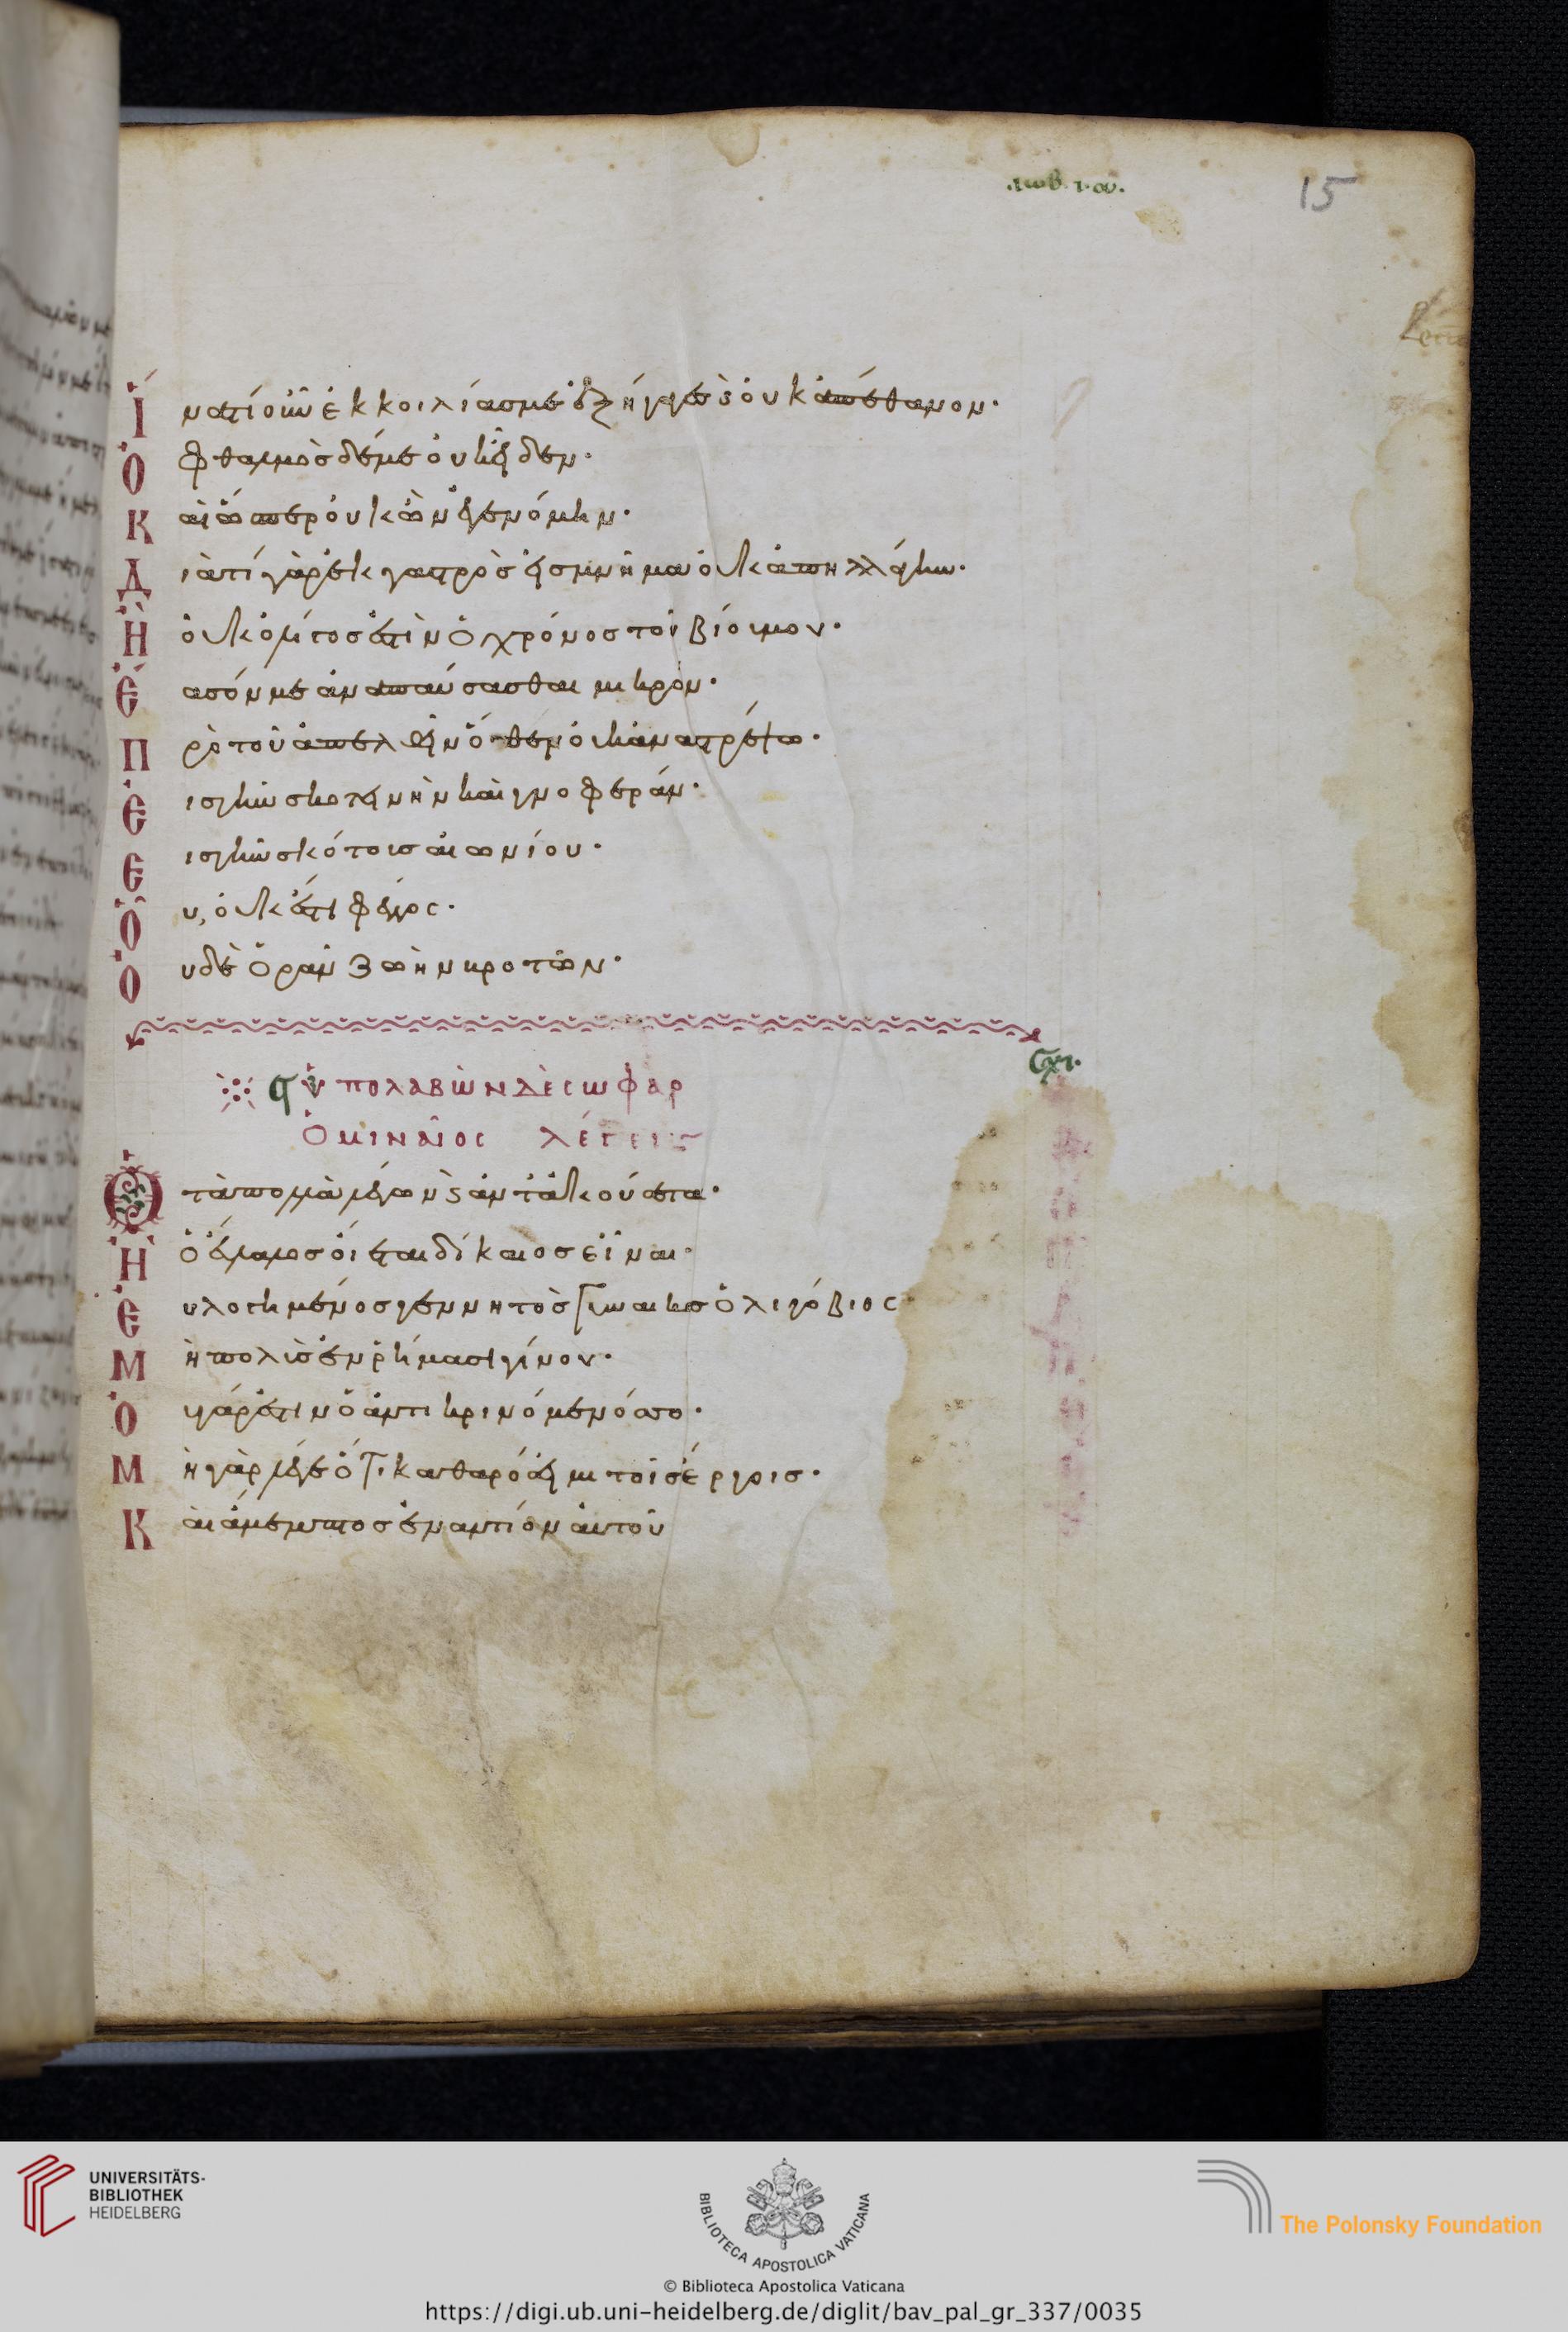 ·ιωβ· ι· αυ·
15
Ἱνατί οὖν ἐκ κοιλίας με ἐξήγαγες καὶ οὐκ ἀπέθανον·
Ὀφθαλμὸς δέ με οὐκ εἶδεν·
Καὶ ὥσπερ οὐκ ὢν ἐγενόμην·
Διατί γὰρ ἐκ γαστρὸς εἰς μνῆμα οὐκ ἀπηλλάγην·
Ἢ οὐκ ὀλίγος ἐστὶν ὁ χρόνος τοῦ βίου μου·
Ἔασόν με ἀναπαύσασθαι μικρόν·
Πρὸ τοῦ ἀπελθεῖν ὅθεν οὐκ ἀναστρέψω·
Εἰς γῆν σκοτεινὴν καὶ γνοφεράν·
Εἰς γῆν σκότους αἰωνίου·
Οὗ, οὐκ ἔστι φέγγος·
Οὐδὲ ὁρᾶν ζωὴν βροτῶν·
Ὑπολαβὼν δὲ σωφὰρ
ὁ μιναῖος λέγει
Ὁ τὰ πολλὰ λέγων καὶ ἀντακούσεται·
Ἢ ὁ εὔλαλος οἴεται δίκαιος εἶναι·
Εὐλογημένος γεννητὸς γυναικὸς ὀλιγόβιος·
Μὴ πολὺς ἐν ῥήμασι γίνου·
Οὐ γάρ ἐστιν ὁ ἀντικρινόμενός σοι·
Μὴ γὰρ λέγε ὅτι καθαρός εἰμι τοῖς ἔργοις·
Καὶ ἄμεμπτος ἐναντίον αὐτοῦ
UNIVERSITÄTS-
BIBLIOTHEK
HEIDELBERG
BIBLIOTECA APOSTOLICA VATICANA
The Polonsky Foundation
© Biblioteca Apostolica Vaticana
https://digi.ub.uni-heidelberg.de/diglit/bav_pal_gr_337/0035